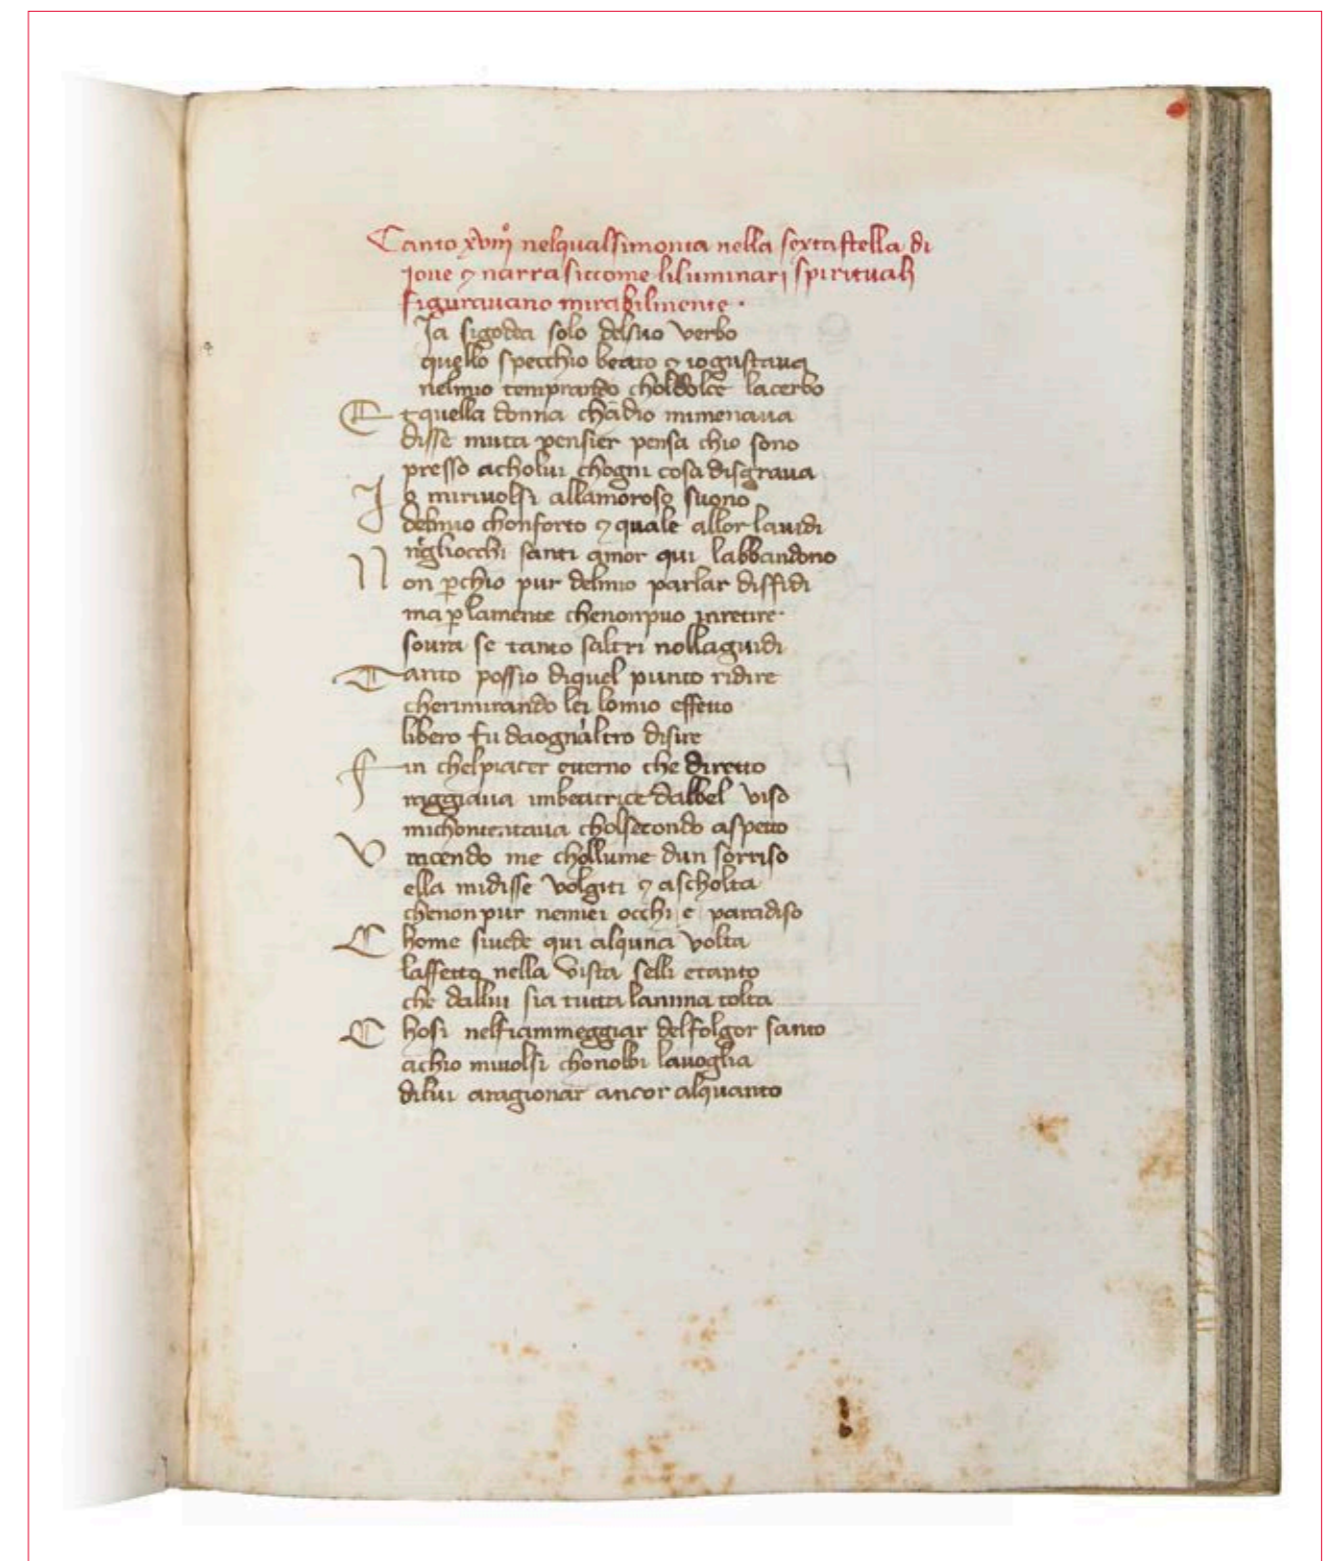 Canto xviij° nelqualsimonta nella sextastella di
Ioue ⁊ narra siccome liluminarj spirituali
figurauano mirabilmente ·
Ia sigodea solo delsuo verbo
quello specchio beato ⁊ iogustaua
nelmio temprando choldolce lacerbo
Et quella donna chadio mimenaua
disse muta pensier pensa chio sono
presso acholui chogni cosa disgraua
Io mirivolsi allamoroso suono
delmio chonforto ⁊ quale allor lauidi
negliocchi santi amor qui labbandono
Non ꝑchio pur delmio parlar diffidi
ma ꝑ lamente chenonpuo jnretire ·
soura se tanto saltri nollaguidi
Tanto possio diquel punto ridire
cherimirando lei lomio effetto
libero fu daognaltro disire
Fin chelpiacer etterno che diretto
raggiaua inbeatrice dalbel viso
michontentaua cholsecondo aspetto
Vincendo me chollume dun sorriso
ella midisse volgiti ⁊ ascholta
chenonpur nemiei occhi e paradiso
Chome siuede qui alquna volta
laffetto nella vista selli etanto
che dallui sia tutta lanima tolta
Chosi nelfiammeggiar delfolgor santo
achio miuolsi chonobbi lauoglia
dilui aragionar ancor alquanto